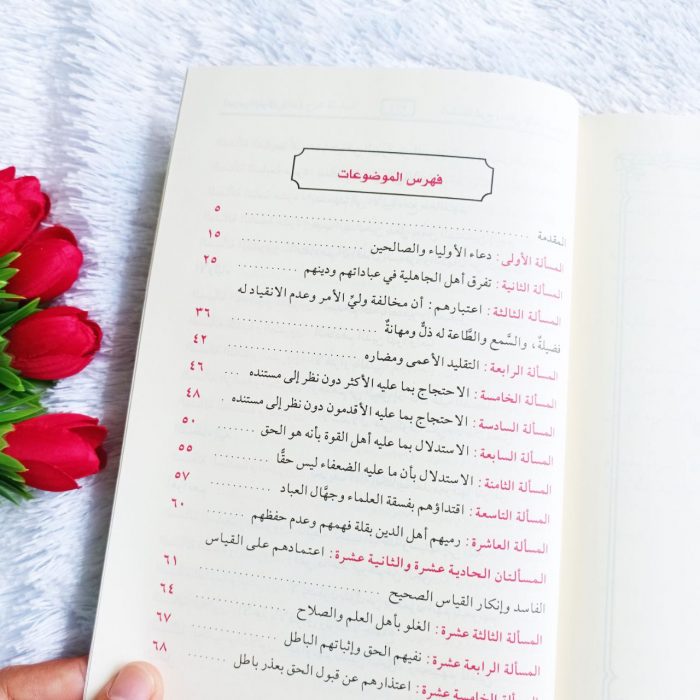 فهرس الموضوعات
المقدمة .......... ٥
المسألة الأولى: دعاء الأولياء والصالحين .......... ١٥
المسألة الثانية: تفرق أهل الجاهلية في عباداتهم ودينهم .......... ٢٥
المسألة الثالثة: اعتبارهم: أن مخالفة وليِّ الأمر وعدم الانقياد له
فضيلةٌ، والسَّمع والطَّاعة له ذلٌّ ومهانةٌ .......... ٣٦
المسألة الرابعة: التقليد الأعمى ومضاره .......... ٤٢
المسألة الخامسة: الاحتجاج بما عليه الأكثر دون نظر إلى مستنده ... ٤٦
المسألة السادسة: الاحتجاج بما عليه الأقدمون دون نظر إلى مستنده . ٤٨
المسألة السابعة: الاستدلال بما عليه أهل القوة بأنه هو الحق ....... ٥٠
المسألة الثامنة: الاستدلال بأن ما عليه الضعفاء ليس حقًّا .......... ٥٥
المسألة التاسعة: اقتداؤهم بفسقة العلماء وجهَّال العباد .......... ٥٧
المسألة العاشرة: رميهم أهل الدين بقلة فهمهم وعدم حفظهم ....... ٦٠
المسألتان الحادية عشرة والثانية عشرة: اعتمادهم على القياس
الفاسد وإنكار القياس الصحيح .......... ٦١
المسألة الثالثة عشرة: الغلو بأهل العلم والصلاح .......... ٦٤
المسألة الرابعة عشرة: نفيهم الحق وإثباتهم الباطل .......... ٦٧
المسألة الخامسة عشرة: اعتذارهم عن قبول الحق بعذر باطل ٦٨